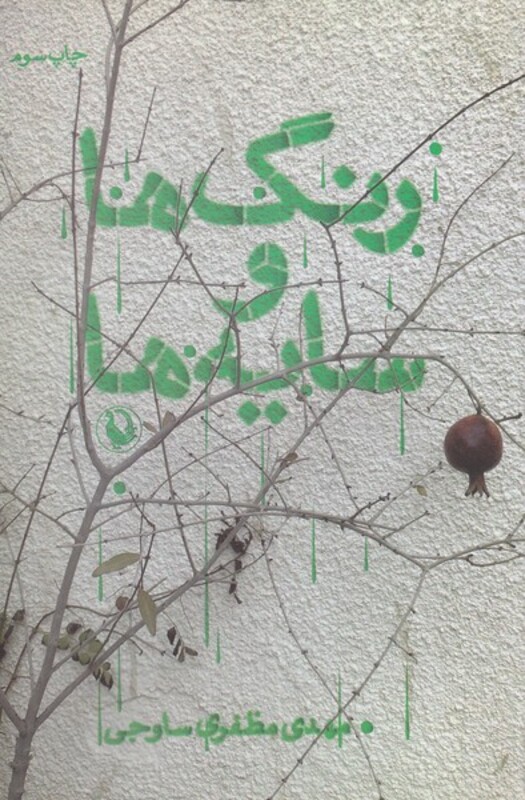 چاپ سوم
رنگ‌ها
و
سایه‌ها
مهدی مظفری ساوجی